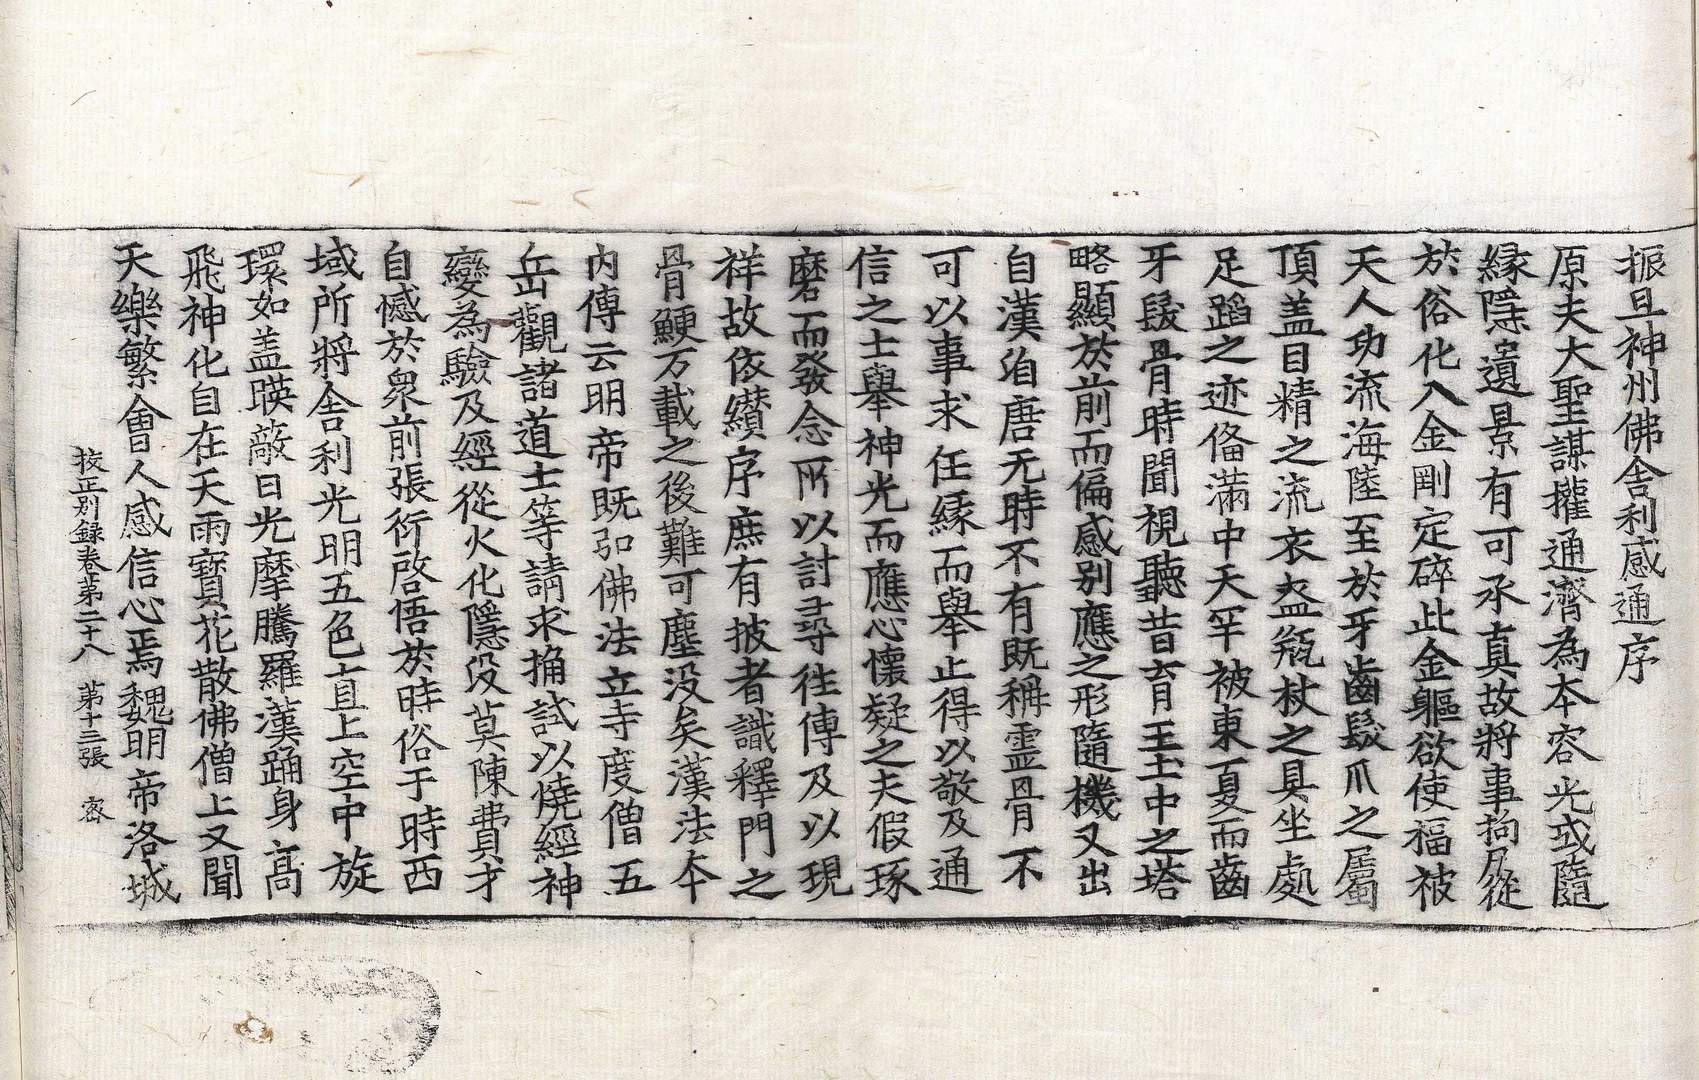 振旦神州佛舍利感通序
原夫大聖謀權通濟為本容光或隨
縁隠遺景有可承真故將事拘尸從
於俗化入金剛定碎此金軀欲使福被
天人功流海陸至於牙齒髮爪之屬
頂盖目精之流衣盔瓶杖之具坐處
足蹈之迹俻滿中天罕被東夏而齒
牙髮骨時聞視聽昔育王土中之塔
略顯於前而偏感别應之形隨機又出
自漢洎唐无時不有既稱霊骨不
可以事求任縁而舉止得以敬及通
信之士舉神光而應心懷疑之夫假琢
磨而發念所以討尋往傳及以現
祥故依纘序庶有披者識釋門之
骨鯁万載之後難可塵没矣漢法夲
内傳云明帝既弘佛法立寺度僧五
岳觀諸道士等請求捔試以燒經神
變為驗及經從火化隱没莫陳費才
自憾於衆前張衍啓悟於時俗于時西
域所將舍利光明五色直上空中旋
環如盖暎蔽日光摩騰羅漢踊身髙
飛神化自在天雨寳花散佛僧上又聞
天樂繁會人感信心焉魏明帝洛城
挍正别録卷第二十八 第十三張 宻